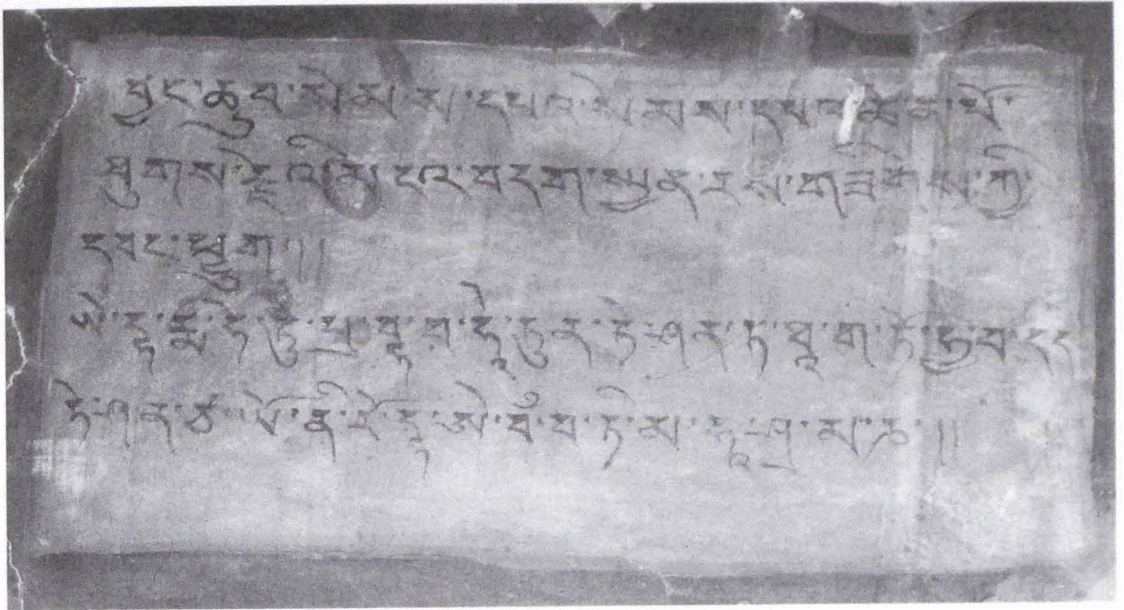 བྱང་ཆུབ་སེམས་དཔའ་སེམས་དཔའ་ཆེན་པོ་
ཐུགས་རྗེའི་མངའ་བདག་སྤྱན་རས་གཟིགས་ཀྱི་
དབང་ཕྱུག།།།
ཡེ་དྷ་རྨེ་ཧེ་ཏུ་པྲ་བྷ་བ་ཧེ་ཏུན་ཏེ་ཤན་ཏ་ཐཱ་ག་ཏོ་ཧྱ་བ་དད
ཏེ་ཤན་ཙ་ཡོ་ནི་རོ་དྷ་ཨེ་བཾ་བ་ཏི་མ་ཧཱ་ཤྲ་མ་ཎ་།།